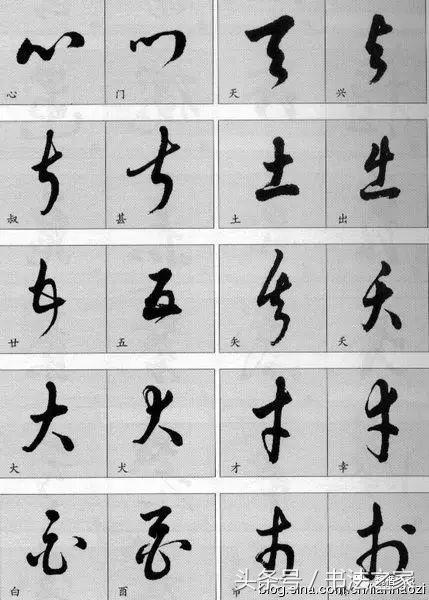 心 门 天 兴
叔 甚 土 出
廿 五 矢 夭
大 犬 才 幸
白 酉
头条号 / 书法之家